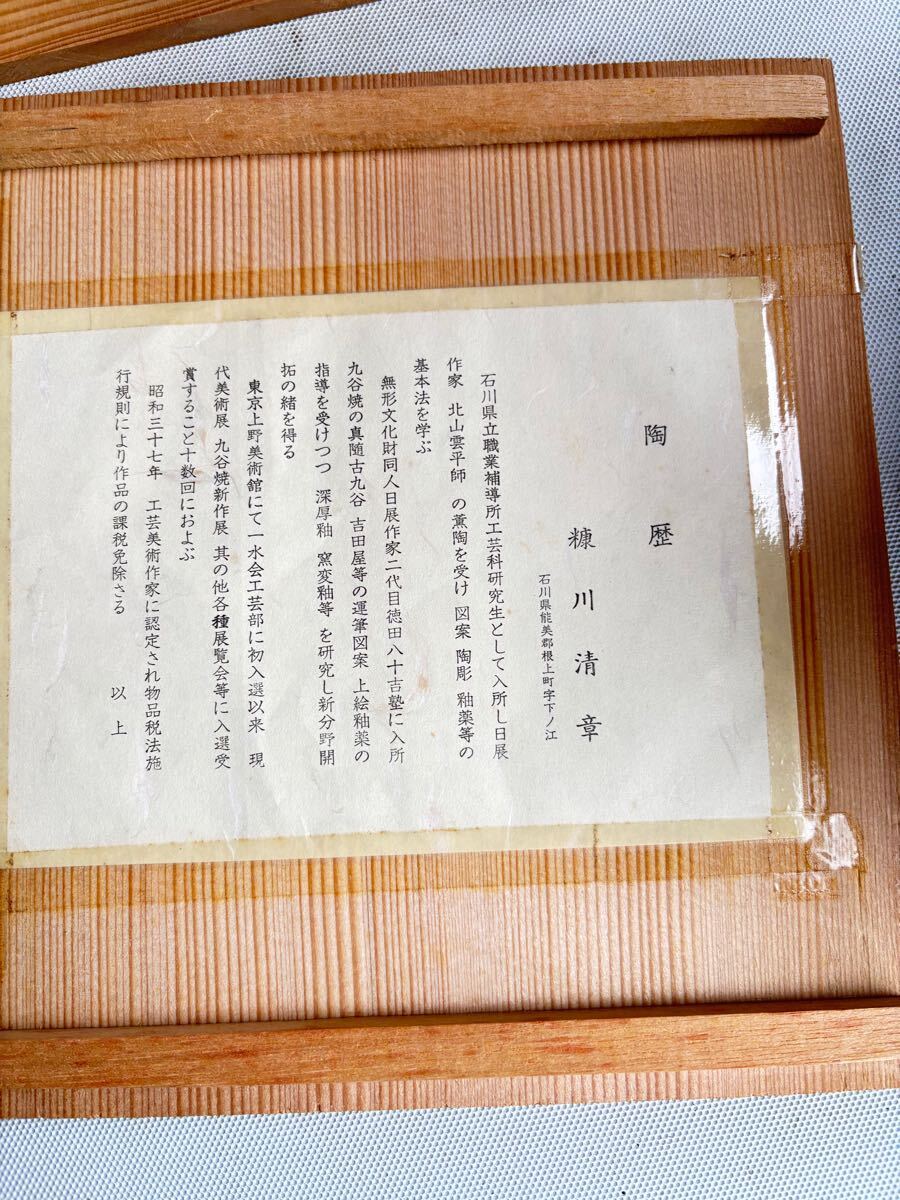 陶歴
糠川清章
石川県能美郡根上町字下ノ江
石川県立職業補導所工芸科研究生として入所し日展
作家 北山雲平師 の薫陶を受け 図案 陶彫 釉薬等の
基本法を学ぶ
無形文化財同人日展作家二代目徳田八十吉塾に入所
九谷焼の真随古九谷 吉田屋等の運筆図案 上絵釉薬の
指導を受けつつ 深厚釉 窯変釉等 を研究し新分野開
拓の緒を得る
東京上野美術館にて一水会工芸部に初入選以来 現
代美術展 九谷焼新作展 其の他各種展覧会等に入選受
賞すること十数回におよぶ
昭和三十七年 工芸美術作家に認定され物品税法施
行規則により作品の課税免除さる 以上